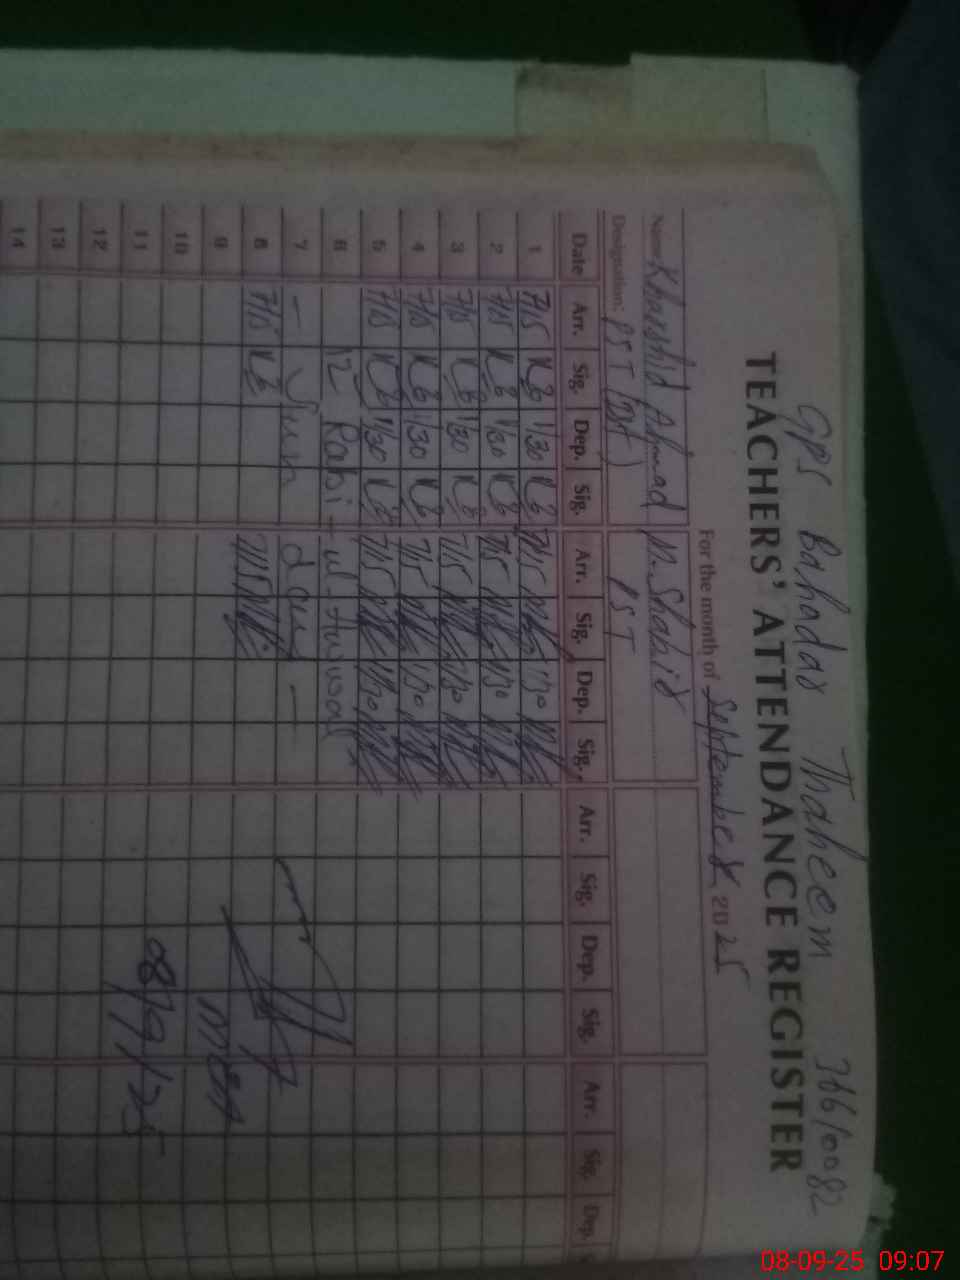 GPS Bahadar Thaheem 36610082
TEACHERS' ATTENDANCE REGISTER
For the month of September 2025
Name Khurshid Ahmad M. Shabir
Designation: PST PST
Date Arr. Sig. Dep. Sig. Arr. Sig. Dep. Sig. Arr. Sig. Dep. Sig. Arr. Sig. Dep.
1 7/15 1/30 7/15 1/30
2 7/15 1/30 7/15 1/30
3 7/15 1/30 7/15 1/30
4 7/15 1/30 7/15 1/30
5 7/15 1/30 7/15 1/30
6 12 Rabi-ul-Awwal
7 — Sunday —
8 7/15 7/15
9
10
11
12
13
14
MEA
8/9/25
08-09-25 09:07